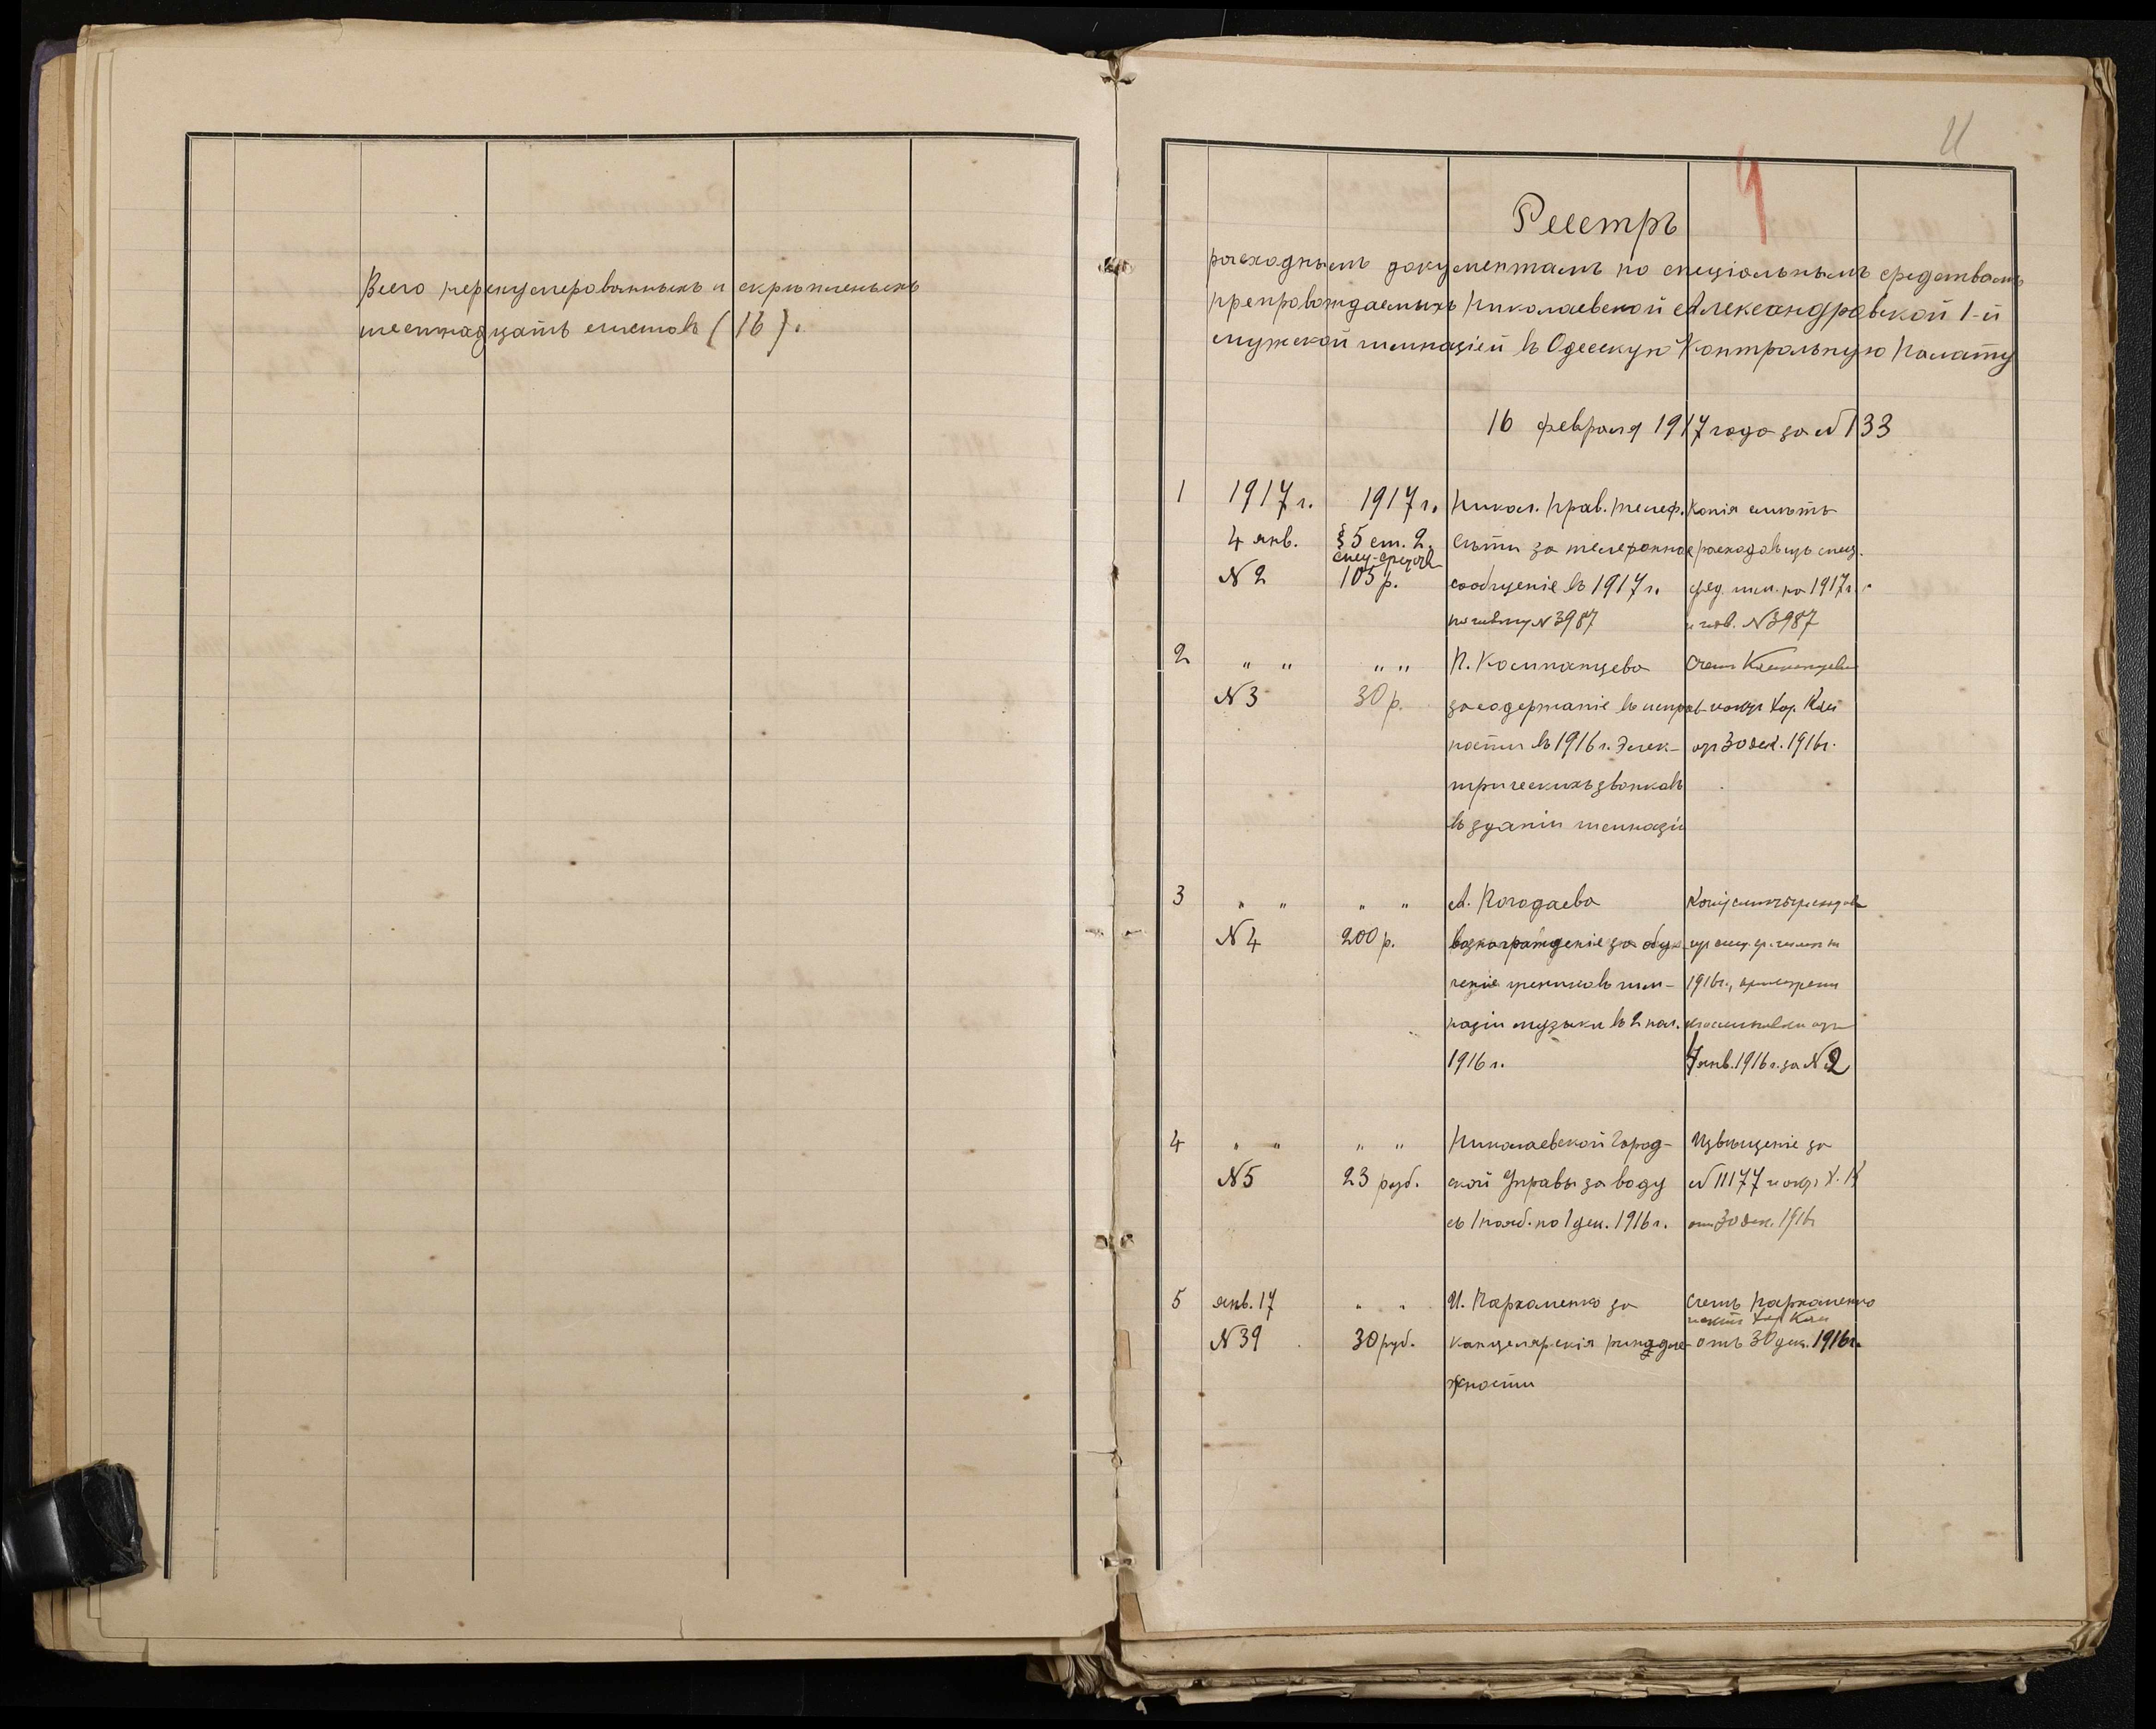 Всего перенумерованныхъ и скрѣпленныхъ
шестнадцать листовъ (16).
Реестръ
расходнымъ документамъ по спеціальнымъ средствамъ
препровождаемыхъ Николаевской Александровской 1-й
мужской гимназіей въ Одесскую Контрольную Палату
16 февраля 1917 года за № 133
1 1917 г. 1917 г. Никол. Прав. телеф. Копія смѣты
4 янв. § 5 ст. 2. сѣти за телефонное расходовъ изъ спец.
спец. средств
№ 2 105 р. сообщеніе въ 1917 г. сред. гим. на 1917 г.
по талону № 3987 и тал. № 3987
2 " " " " П. Компанцева Счетъ Компанцева
№ 3 30 р. за содержаніе въ исправ- Хоз. Ком
ности въ 1916 г. элек- отъ 30 дек. 1916 г.
трическихъ звонковъ
въ зданіи гимназіи
3 " " " " А. Погодаева Копія смѣты расходовъ
№ 4 200 р. вознагражденіе за обу- изъ спец. ср. гимн.
ченіе учениковъ гим- 1916 г.,
назіи музыки въ 2 пол.
1916 г. янв. 1916 г. за № 2
4 " " " " Николаевской Город- Извѣщеніе за
№ 5 23 руб. ской Управы за воду № 11177 и
съ 1 нояб. по 1 дек. 1916 г. отъ 30 дек. 1916
5 янв. 17 " " И. Пархоменко за Счетъ Пархоменко
Хоз Ком
№ 39 30 руб. канцелярскія принадле- отъ 30 дек. 1916 г.
жности